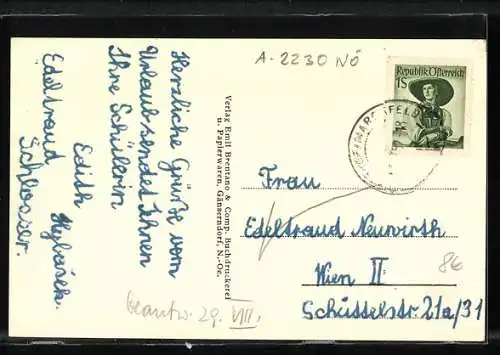 A-2230 NÖ
Republik Österreich
1S
Herzliche Grüße vom
Urlaub sendet Ihnen
Ihre Schülerin
Edith
Edeltraud Schlosser.
Verlag Emil Brentano & Comp. Buchdruckerei
u. Papierwaren, Gänserndorf, N.-Oe.
Frau
Edeltraud Neuwirth
Wien II
Schüttelstr 21a/31
beantw. 29. VIII.